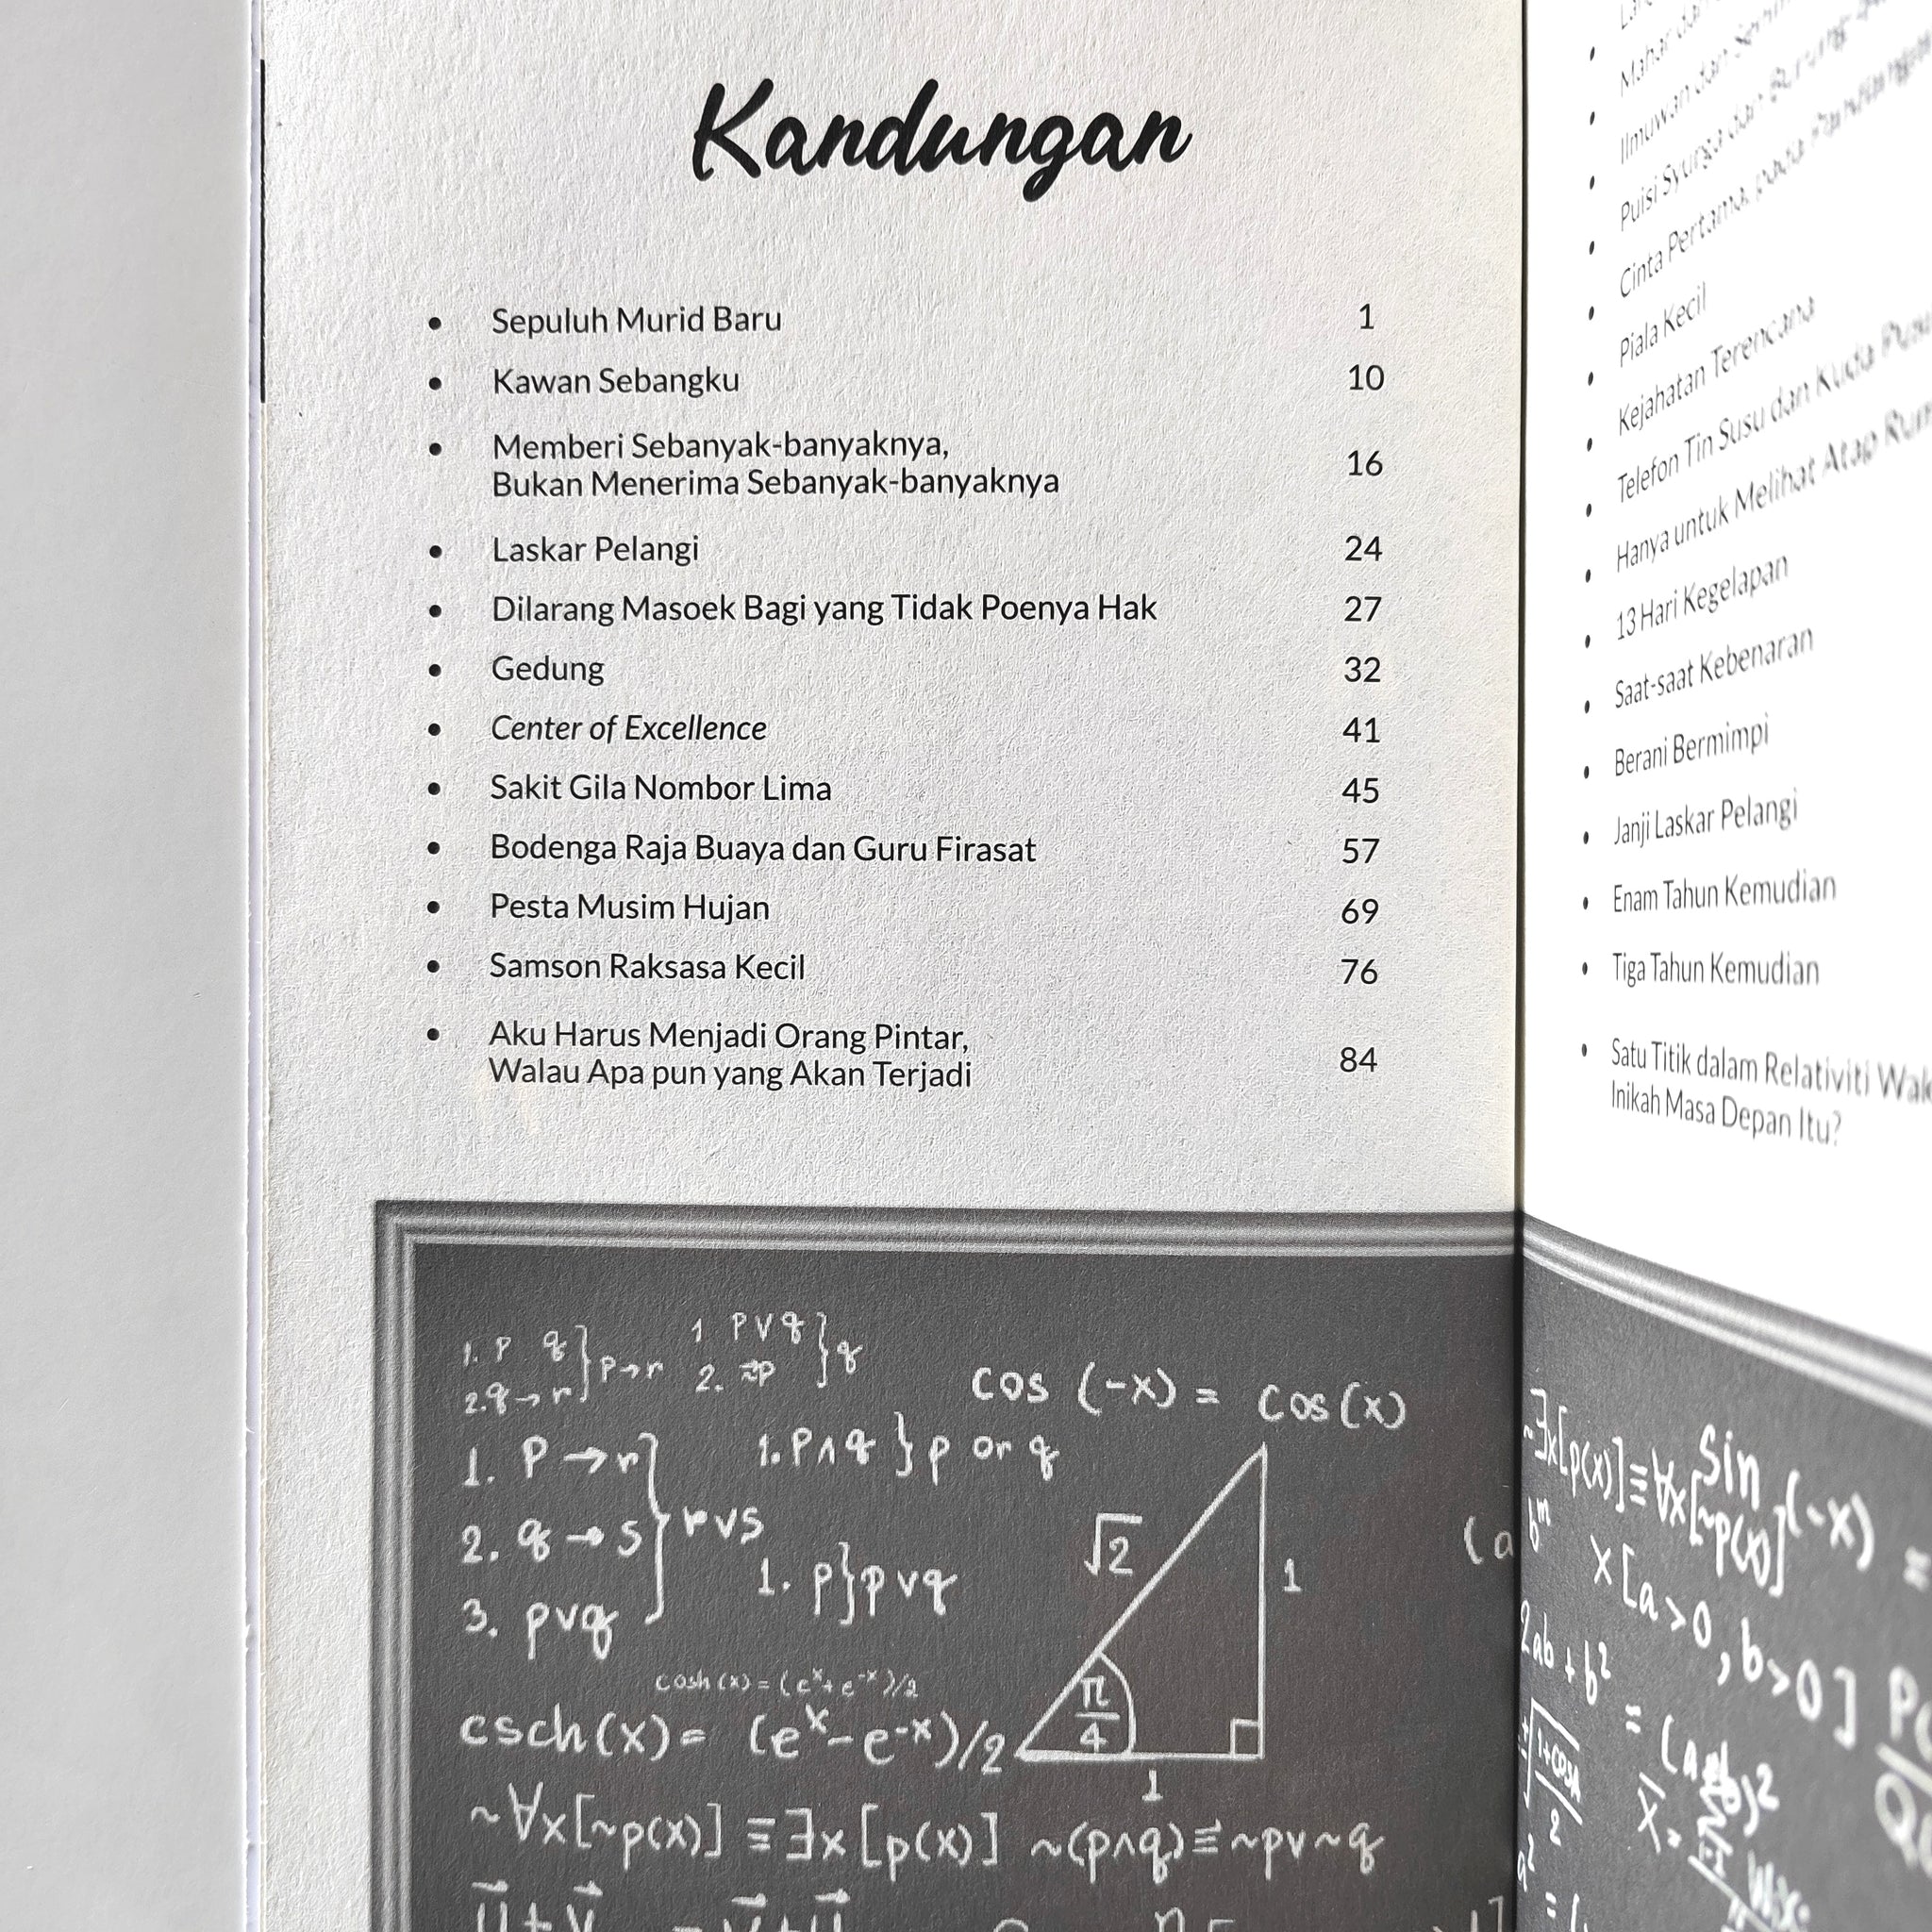 Kandungan
• Sepuluh Murid Baru 1
• Kawan Sebangku 10
• Memberi Sebanyak-banyaknya,
Bukan Menerima Sebanyak-banyaknya 16
• Laskar Pelangi 24
• Dilarang Masoek Bagi yang Tidak Poenya Hak 27
• Gedung 32
• Center of Excellence 41
• Sakit Gila Nombor Lima 45
• Bodenga Raja Buaya dan Guru Firasat 57
• Pesta Musim Hujan 69
• Samson Raksasa Kecil 76
• Aku Harus Menjadi Orang Pintar,
Walau Apa pun yang Akan Terjadi 84
1. p q } p→r
2. q→r
1. p∨q } q
2. ≈p
cos (-x) = cos(x)
1. p→r
2. q→s } r∨s
3. p∨q
1. p∧q } p or q
1. p } p∨q
√2
1
π/4
1
cosh(x) = (e^x + e^-x)/2
csch(x) = (e^x - e^-x)/2
~∀x[~p(x)] ≡ ∃x[p(x)] ~(p∧q) ≡ ~p∨~q
(a
• Mahar
• Ilmuwan dan
• Puisi Syurga dan
• Cinta Pertama
• Piala Kecil
• Kejahatan Terencana
• Telefon Tin Susu dan Kuda
• Hanya untuk Melihat Atap
• 13 Hari Kegelapan
• Saat-saat Kebenaran
• Berani Bermimpi
• Janji Laskar Pelangi
• Enam Tahun Kemudian
• Tiga Tahun Kemudian
• Satu Titik dalam Relativiti
Inikah Masa Depan Itu?
~∃x[p(x)] ≡ ∀x[~p(x)]
Sin (-x) =
b^m
x [a>0, b>0]
2ab + b²